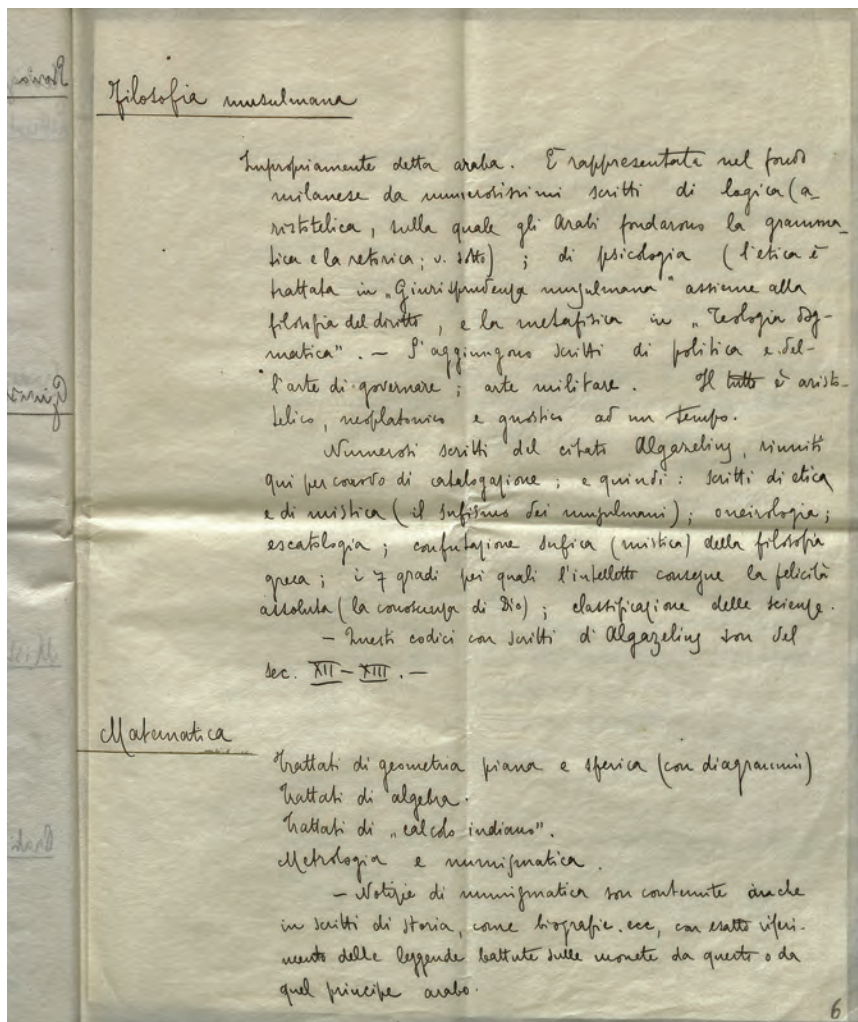 Filosofia musulmana
Impropriamente detta araba. È rappresentata nel fondo
milanese da numerosissimi scritti di logica (a-
ristotelica, sulla quale gli Arabi fondarono la gramma-
tica e la retorica; v. sotto); di psicologia (l'etica è
trattata in „Giurisprudenza musulmana" assieme alla
filosofia del diritto, e la metafisica in „Teologia dog-
matica". — S'aggiungono scritti di politica e del-
l'arte di governare; arte militare. Il tutto è aristo-
telico, neoplatonico e gnostico ad un tempo.
Numerosi scritti del citato Algazelius, riuniti
qui per comodo di catalogazione; e quindi: scritti di etica
e di mistica (il sufismo dei musulmani); oneirologia;
escatologia; confutazione sufica (mistica) della filosofia
greca; i 7 gradi pei quali l'intelletto consegue la felicità
assoluta (la conoscenza di Dio); classificazione delle scienze.
— Questi codici con scritti d'Algazelius son del
sec. XII–XIII. —
Matematica
Trattati di geometria piana e sferica (con diagrammi)
Trattati di algebra.
Trattati di „calcolo indiano".
Metrologia e numismatica.
— Notizie di numismatica son contenute anche
in scritti di storia, come biografie. ecc, con esatto riferi-
mento delle leggende battute sulle monete da questo o da
quel principe arabo.
6